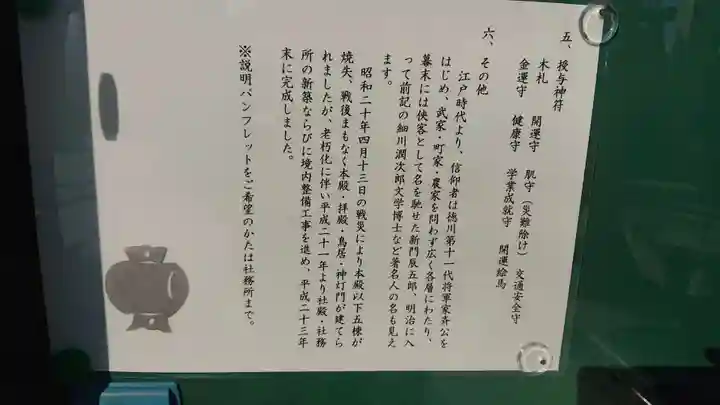 五、授与神符
木札　開運守　肌守（災難除け）　交通安全守
金運守　健康守　学業成就守　開運絵馬
六、その他
江戸時代より、信仰者は徳川第十一代将軍家斉公を
はじめ、武家・町家・農家を問わず広く各層にわたり、
幕末には侠客として名を馳せた新門辰五郎、明治に入
って前記の細川潤次郎文学博士など著名人の名も見え
ます。
昭和二十年四月十三日の戦災により本殿以下五棟が
焼失、戦後まもなく本殿・拝殿・鳥居・神灯門が建てら
れましたが、老朽化に伴い平成二十一年より社殿・社務
所の新築ならびに境内整備工事を進め、平成二十三年
末に完成しました。
※説明パンフレットをご希望のかたは社務所まで。